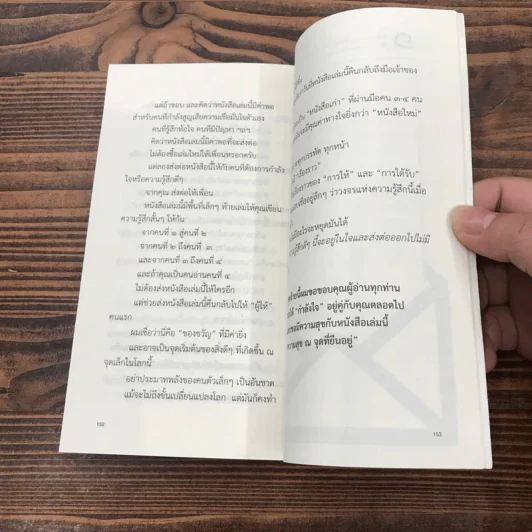 แต่ถ้าชอบ และคิดว่าหนังสือเล่มนี้มีค่าพอ
สำหรับคนที่กำลังสูญเสียความเชื่อมั่นในตัวเอง
คนที่รู้สึกท้อใจ คนที่มีปัญหา ฯลฯ
คิดว่าหนังสือเล่มนี้มีค่าพอที่จะส่งต่อ
ไม่ต้องซื้อเล่มใหม่ให้เพื่อนหรอกครับ
แต่ลองส่งต่อหนังสือนี้ให้กับคนที่ต้องการกำลัง
ใจหรือความรู้สึกดีๆ
จากคุณ ส่งต่อให้เพื่อน
หนังสือเล่มนี้มีพื้นที่เล็กๆ ท้ายเล่มให้คุณเขียน
ความรู้สึกสั้นๆ ให้กัน
จากคนที่ ๑ สู่คนที่ ๒
จากคนที่ ๒ ถึงคนที่ ๓
และจากคนที่ ๓ ถึงคนที่ ๔
และถ้าคุณเป็นคนอ่านคนที่ ๔
ไม่ต้องส่งหนังสือเล่มนี้ให้ใครอีก
แต่ช่วยส่งหนังสือเล่มนี้คืนกลับไปให้ "ผู้ให้"
คนแรก
ผมเชื่อว่านี่คือ "ของขวัญ" ที่มีค่ายิ่ง
และอาจเป็นจุดเริ่มต้นของสิ่งดีๆ ที่เกิดขึ้น ณ
จุดเล็กในโลกนี้
อย่าประมาทพลังของคนตัวเล็กๆ เป็นอันขาด
แม้จะไม่ถึงขั้นเปลี่ยนแปลงโลก แต่มันก็คงทำ
150
หนังสือเล่มนี้คืนกลับถึงมือเจ้าของ
เป็น "หนังสือเก่า" ที่ผ่านมือคน ๓-๔ คน
มีคุณค่าทางใจยิ่งกว่า "หนังสือใหม่"
ทุกบรรทัด ทุกหน้า
เรื่องราว"
ของการ "การให้" และ "การได้รับ"
อยู่ลึกๆ ว่าวงจรแห่งความรู้สึกนี้เมื่อ
มีอะไรจะหยุดมันได้
รู้สึกดีๆ นี้จะอยู่ในใจและส่งต่อออกไปไม่มี
นี้ผมขอขอบคุณผู้อ่านทุกท่าน
ให้ "กำลังใจ" อยู่คู่กับคุณตลอดไป
ขอมีความสุขกับหนังสือเล่มนี้
ความสุข ณ จุดที่ยืนอยู่"
153